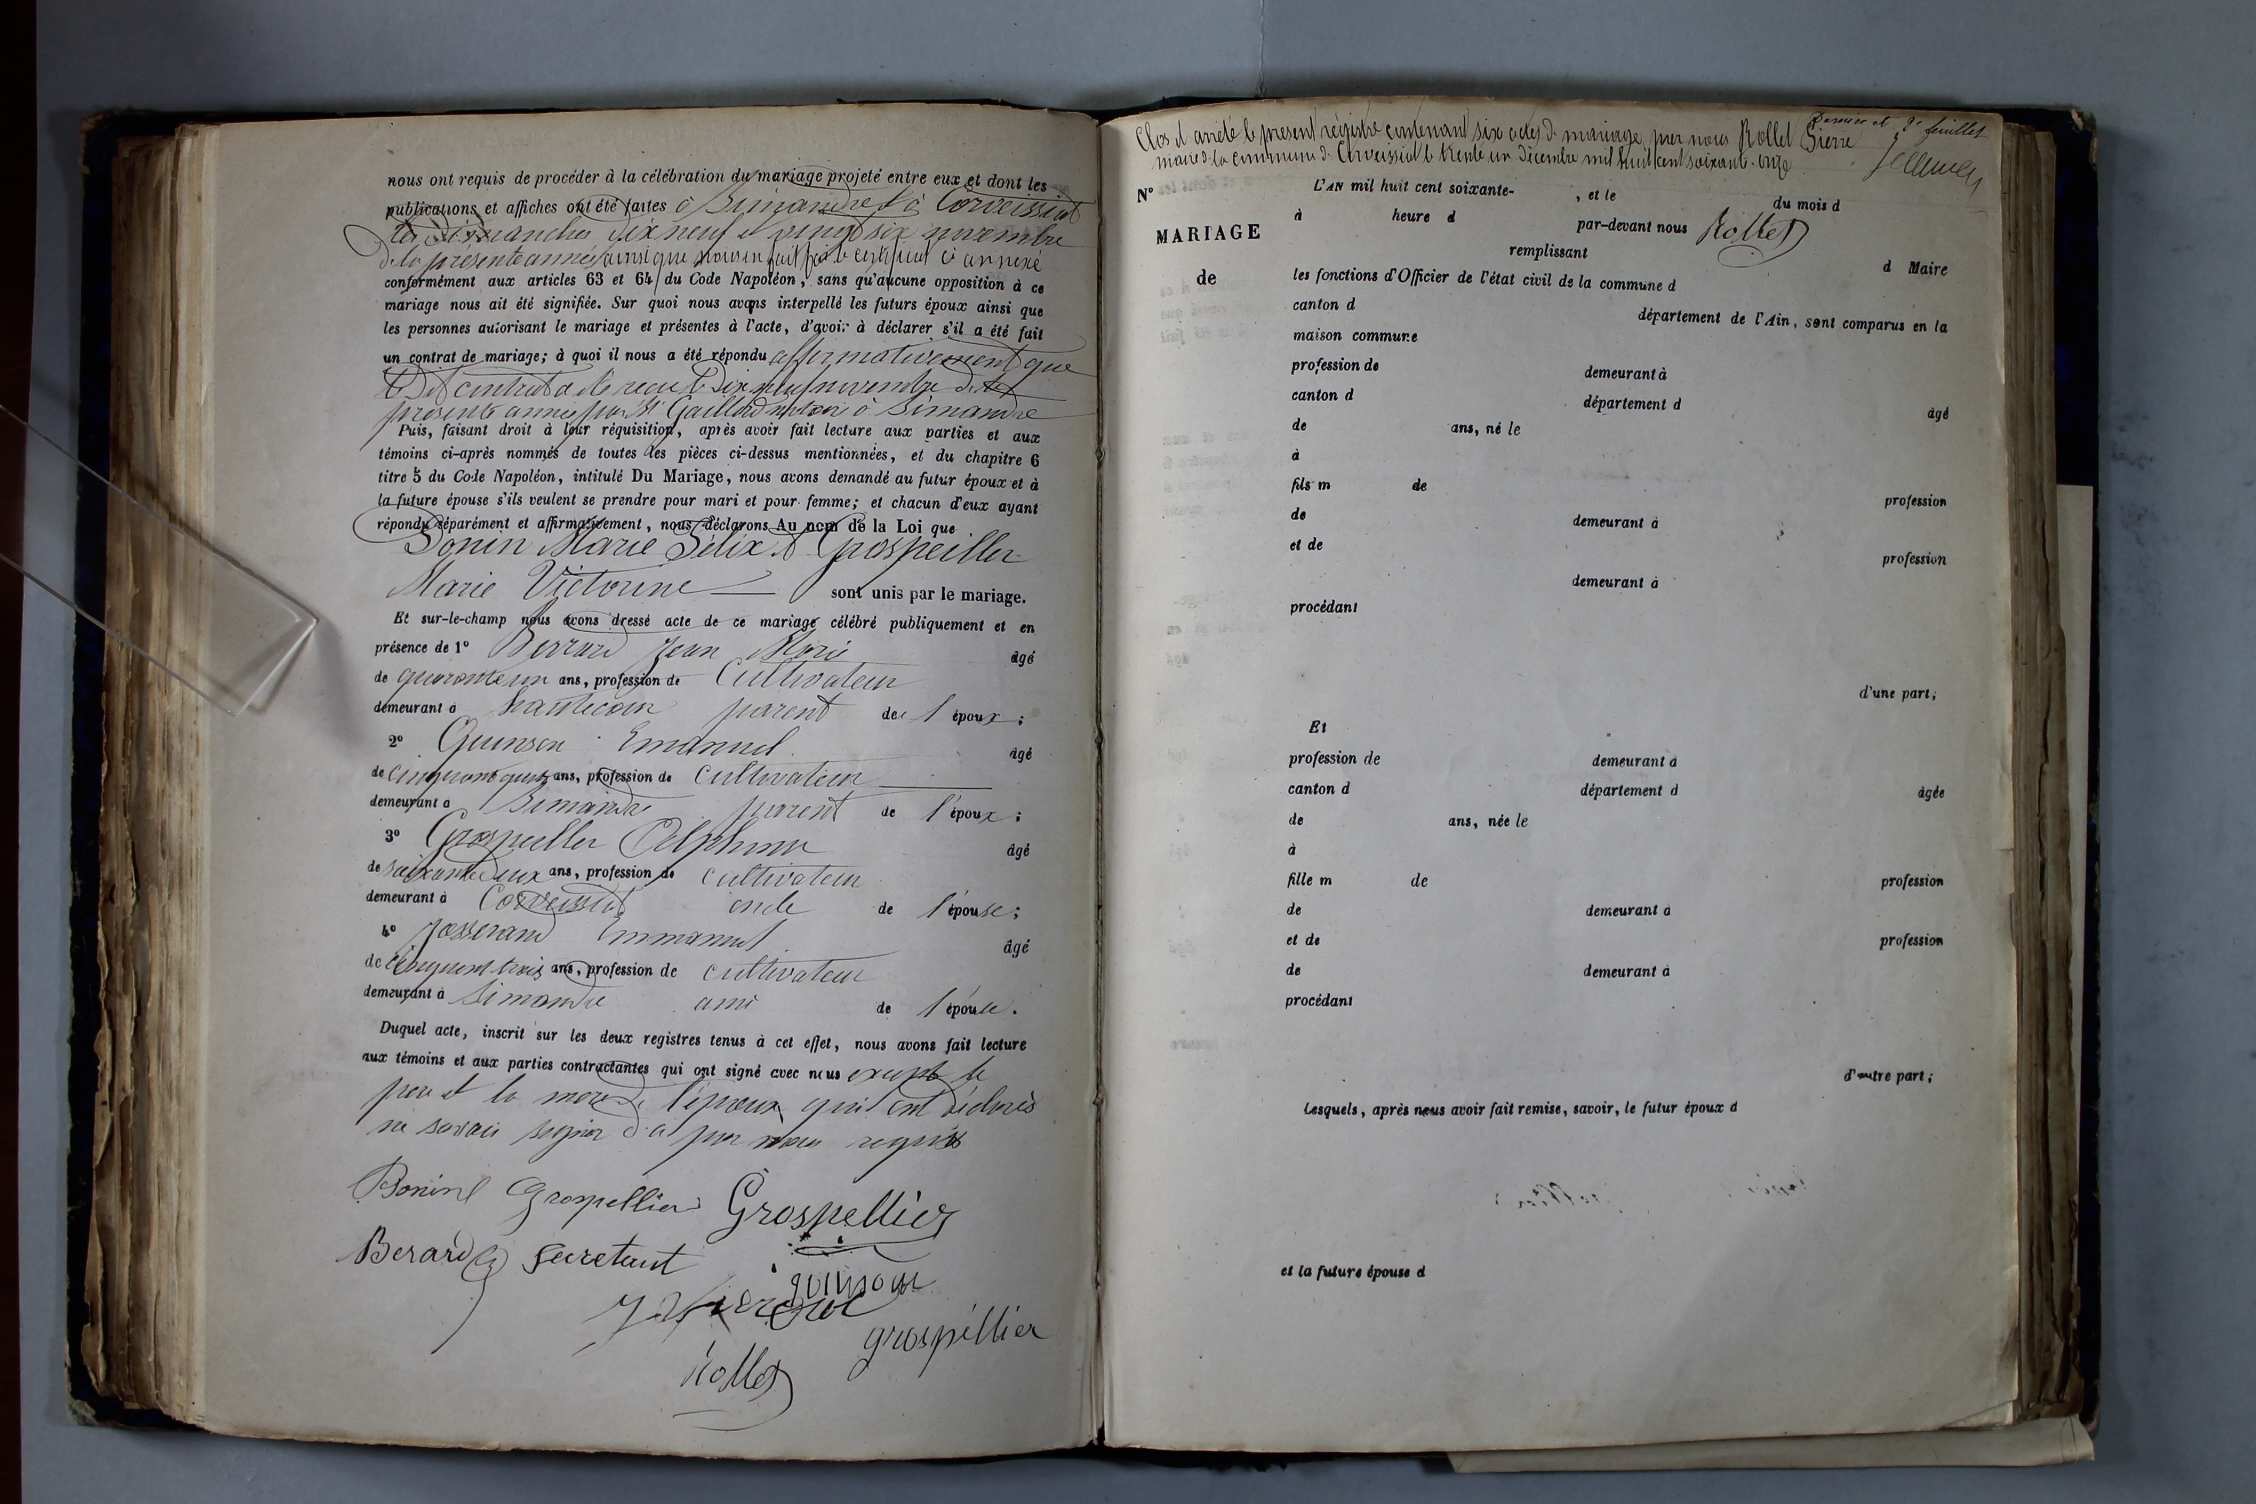 nous ont requis de procéder à la célébration du mariage projeté entre eux et dont les
publications et affiches ont été faites à Simandre et à Corveissiat
les dimanches dix neuf et vingt six novembre
de la présente année ainsi que nous en fait foi le certificat ci annexé
conformément aux articles 63 et 64 du Code Napoléon, sans qu'aucune opposition à ce
mariage nous ait été signifiée. Sur quoi nous avons interpellé les futurs époux ainsi que
les personnes autorisant le mariage et présentes à l'acte, d'avoir à déclarer s'il a été fait
un contrat de mariage; à quoi il nous a été répondu affirmativement que
le dit contrat a été reçu le dix neuf novembre de la
présente année par Me Gaillard notaire à Simandre
Puis, faisant droit à leur réquisition, après avoir fait lecture aux parties et aux
témoins ci-après nommés de toutes les pièces ci-dessus mentionnées, et du chapitre 6
titre 5 du Code Napoléon, intitulé Du Mariage, nous avons demandé au futur époux et à
la future épouse s'ils veulent se prendre pour mari et pour femme; et chacun d'eux ayant
répondu séparément et affirmativement, nous déclarons Au nom de la Loi que
Bonin Marie Félix et Grospeiller
Marie Victorine sont unis par le mariage.
Et sur-le-champ nous avons dressé acte de ce mariage célébré publiquement et en
présence de 1º Berrard Jean Marie âgé
de quarante un ans, profession de Cultivateur
demeurant à parent de l'époux;
2º Quinson Emanuel âgé
de ans, profession de cultivateur
demeurant à Simandre parent de l'époux;
3º Grospeller Delphin âgé
de soixante deux ans, profession de cultivateur
demeurant à Corveissiat oncle de l'épouse;
4º Josserand Emmanuel âgé
de cinquent trois ans, profession de cultivateur
demeurant à Simandre ami de l'épouse.
Duquel acte, inscrit sur les deux registres tenus à cet effet, nous avons fait lecture
aux témoins et aux parties contractantes qui ont signé avec nous excepté le
père et la mère de l'époux qui ont déclarés
ne savoir signer de ce par nous requis
Bonin Grospellier Grospellier
Berard Secretant
quinson
grospellier
Rollet
Dernier et 9e feuillet
Clos et arrêté le présent régistre contenant six actes de mariage par nous Rollet Pierre
maire de la commune de Corveissiat le trente un décembre mil huit cent soixante-onze
Rollet
Nº
MARIAGE
de
L'AN mil huit cent soixante- , et le du mois d
à heure d par-devant nous
remplissant
les fonctions d'Officier de l'état civil de la commune d d Maire
canton d département de l'Ain, sont comparus en la
maison commune
profession de demeurant à
canton d département d âgé
de ans, né le
à
fils m de profession
de demeurant à
et de profession
demeurant à
procédant
d'une part;
Et
profession de demeurant à
canton d département d âgée
de ans, née le
à
fille m de profession
de demeurant à
et de profession
de demeurant à
procédant
d'autre part;
Lesquels, après nous avoir fait remise, savoir, le futur époux d
et la future épouse d